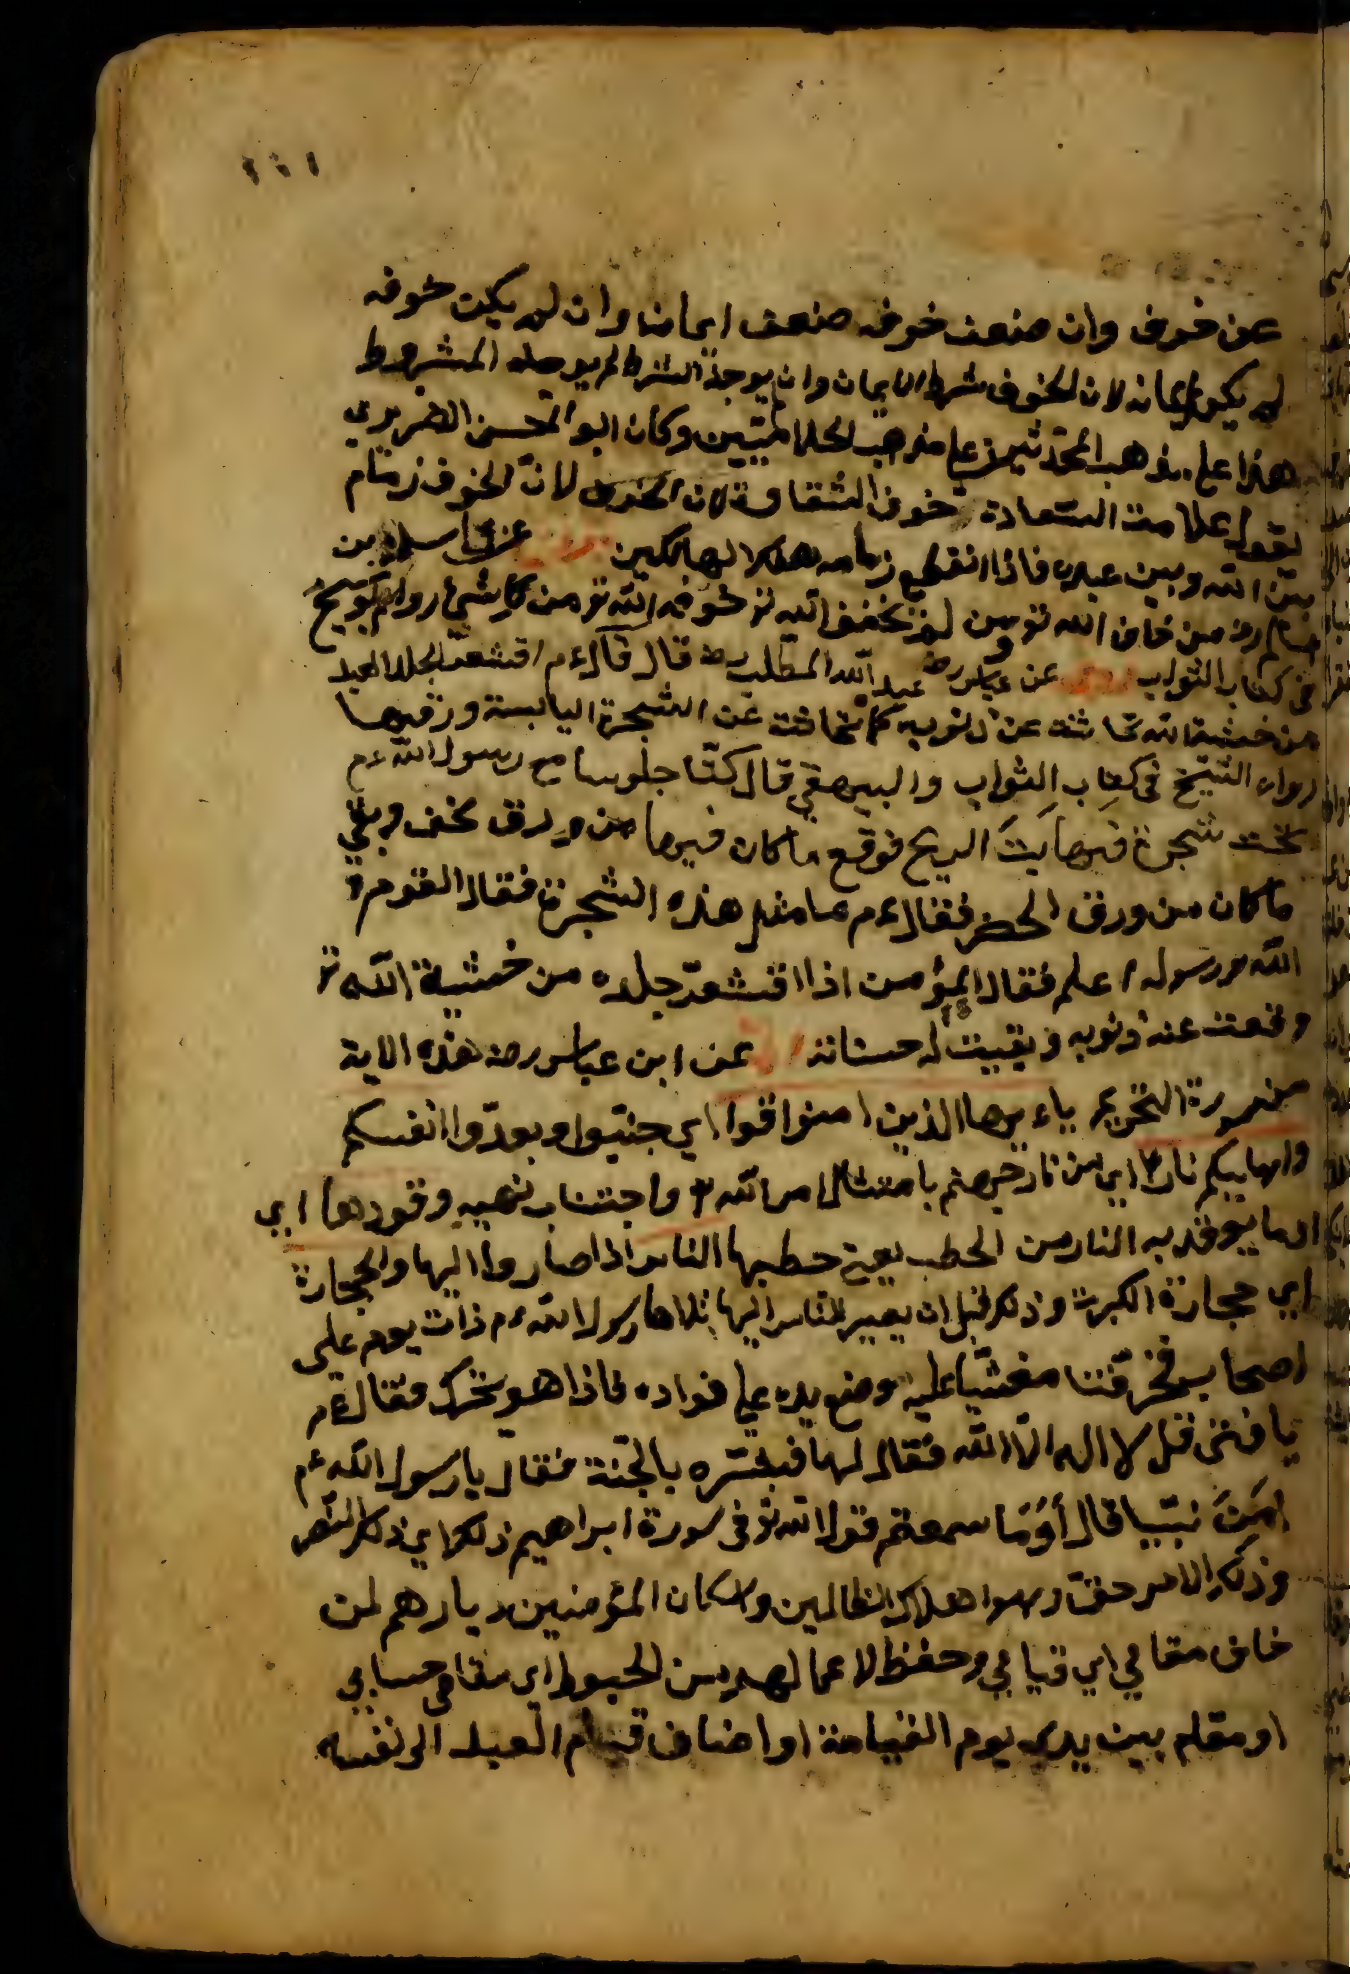 ١١١
عن خوف وان ضعف خوفه ضعف ايمانه وان لم يكن خوفه
لم يكن ايمانه لان الخوف شرط الايمان وان يوجد الشرط لم يوجد المشروط
هذا على مذهب المحدثين على مذهب الكلاميين وكان ابو الحسن الضريري
يقول علامت السعادة خوف الشقاوة لان الخوف لان الخوف زمام
بين الله وبين عبده فاذا انقطع زمامه هلك الهالكين
من خاف الله تو من لم يخف الله تو خوفه الله تو من كل شئ رواه ابو شيخ
في كتاب الثواب روى عن عباس رض عبد الله المطلب رض قال قال ءم اقشعر الجلد العبد
من خشية الله تحاتت عن ذنوبه كما تحاتت عن الشجرة اليابسة ورقها
رواه الشيخ في كتاب الثواب والبيهقي قال كنا جلوسا مع رسول الله ءم
تحت شجرة فهايت الريح فوقع ما كان فيها من ورق نخف وبقي
ما كان من ورق الحضر فقال ءم ما مثل هذه الشجرة فقال القوم
الله ورسوله اعلم فقال المؤمن اذا اقشعر جلده من خشية الله تو
وقعت عنه ذنوبه وبقيت له حسناته عن ابن عباس رض هذه الاية
من سورة التحريم ياءيها الذين امنوا قوا اي جنبوا وبعدوا انفسكم
واهليكم نارا اي من نار جهنم بامتثال امر الله تو واجتناب نهيه وقودها اي
ما يوقد به النار من الحطب يعني حطبها الناس اذا صاروا اليها والحجارة
اي حجارة الكبريت وذلك قبل ان يصير الناس اليها تلاها رسول الله ءم ذات يوم على
اصحابه فخر فتنا مغشيا عليه وضع يده على فواده فاذا هو يتحرك فقال ءم
يا فتى قل لا اله الا الله فقال لها فبشره بالجنة فقال يا رسول الله ءم
امن نبيا قال أوما سمعتم قول الله تو في سورة ابراهيم ذلك اي ذلك النصر
وذلك الامر حق وهوا هلاك الظالمين ولاسكان المؤمنين ديارهم لمن
خاف مقامي اي قيامي وحفظ لاعمالهم من الحبوط اي مقامي حسابي
او مقام بين يدي يوم القيامة او اضاف قيام العبد الى نفسه